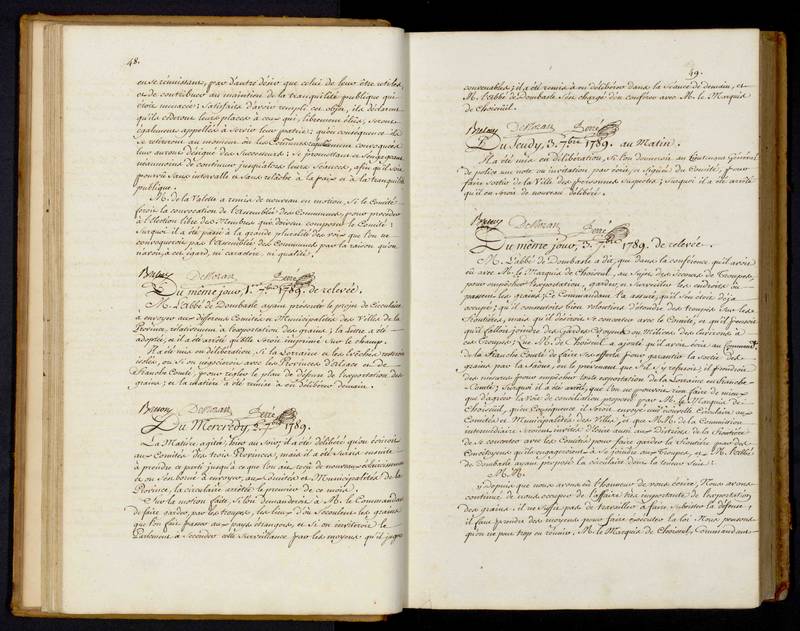 48.
en se réunissant, par d'autre désir que celui de leur être utiles
et de contribuer au maintien de la tranquilité publique qui
étoit menacée; Satisfaits d'avoir rempli cet objet, ils déclarent
qu'ils céderont leurs places à ceux qui, librement élus, seront
également appellés à servir leur patrie; qu'en conséquence ils
se retireront au moment où les Communes régulièrement convoquées
leur auront désigné des Successeurs; Se promettant et s'engageant
néanmoins de continuer jusqu'alors leurs Séances, afin qu'il soit
pourvu Sans intervalle et Sans relâche à la paix et à la tranquilité
publique.
M. de la Valette a remis de nouveau en motion, Si le Comité
feroit la convocation de l'assemblée des Communes, pour procéder
à l'élection libre des Membres qui doivent composer le Comité:
Surquoi il a été passé à la grande pluralité des voix que l'on ne
convoqueroit pas l'assemblée des Communes par la raison qu'on
n'avoit, à cet égard, ni caractère, ni qualité.
Du même jour, 1er 7bre 1789. de relevée.
M. L'abbé de Dombasle ayant présenté le projet de Circulaire
à envoyer aux différents Comités et Municipalités des Villes de la
Province, relativement à l'exportation des grains; la lettre a été
adoptée, et il a été arrêté qu'elle seroit imprimée Sur le champ.
Il a été mis en délibération, Si la Lorraine et les Evêchés resteroient
isolés, ou Si on négocieroit avec les Provinces d'Alsace et de
Franche Comté, pour régler le plan de défense de l'exportation des
grains; et la matière a été remise à en délibérer demain.
Du Mercredy, 2. 7bre 1789.
La Matière agitée, hier au Soir, il a été délibéré qu'on écriroit
aux Comités des trois Provinces, mais il a été Sursis ensuite
à prendre ce parti jusqu'à ce que l'on ait reçu de nouveaux éclaircissemens
et on s'est borné à envoyer, aux Comités et Municipalités de la
Province, la circulaire arrêtée le premier de ce mois.
Sur la motion faite, Si l'on demanderoit à M. le Commandant
de faire garder, par les troupes, les lieux d'où s'écoulent les grains
que l'on fait passer aux pays étrangers, et Si on inviteroit le
Parlement à Seconder cette Surveillance par les moyens qu'il jugera
49.
convenables; il a été remis à en délibérer dans la Séance de demain, et
M. l'abbé de Dombasle s'est chargé d'en conférer avec M. le Marquis
de Choiseul.
Du Jeudy, 3. 7bre 1789. au Matin.
Il a été mis en délibération, Si l'on donneroit au Lieutenant Général
de police une note ou invitation par écrit, et signée du Comité, pour
faire Sortir de la Ville des personnes Suspectes; Surquoi il a été arrêté
qu'il en seroit de nouveau délibéré.
Du même jour, 3. 7bre 1789. de relevée.
M. L'abbé de Dombasle a dit, que dans la conférence qu'il avoit
eu avec M. le Marquis de Choiseul, au Sujet des Secours de Troupes,
pour empêcher l'exportation, garder, et Surveiller les endroits où
passent les grains; Ce Commandant l'a assuré, qu'il s'en étoit déjà
occupé; qu'il consentoit bien volontiers d'étendre des troupes Sur les
frontières, mais qu'il désiroit se concerter avec le Comité, et qu'il pensoit
qu'il falloit joindre des Gardes Citoyennes ou Milices des environs à
ces Troupes; Que M. de Choiseul a ajouté qu'il avoit écrit au Commandt
de la Franche Comté de faire Ses efforts pour garantir la Sortie des
grains par la Saône, en le prévenant que s'il s'y refusoit; il prendroit
des mesures pour empêcher toute exportation de la Lorraine en Franche-
Comté; Surquoi il a été arrêté, que l'on ne pouvoit rien faire de mieux
que d'agréer la voie de conciliation proposée par M. le Marquis de
Choiseul, qu'en Conséquence il Seroit envoyé une nouvelle Circulaire aux
Comités et Municipalités des Villes, et que M.M. de la Commission
intermédiaire Seroient invités d'écrire aussi aux Districts de la frontière
de Se concerter avec les Comités pour faire garder la frontière par des
Concitoyens qu'ils engageroient à Se joindre aux Troupes, et M. l'abbé
de Dombasle ayant proposé la circulaire dont la teneur Suit:
M.M.
Depuis que nous avons eu l'honneur de vous écrire, Nous avons
continué de nous occuper de l'affaire très importante de l'exportation
des grains. il ne Suffit pas de travailler à faire Subsister la défense,
il faut prendre des moyens pour faire exécuter la loi. Nous pensons
qu'on ne peut trop en réunir. M. le Marquis de Choiseul, Commandant